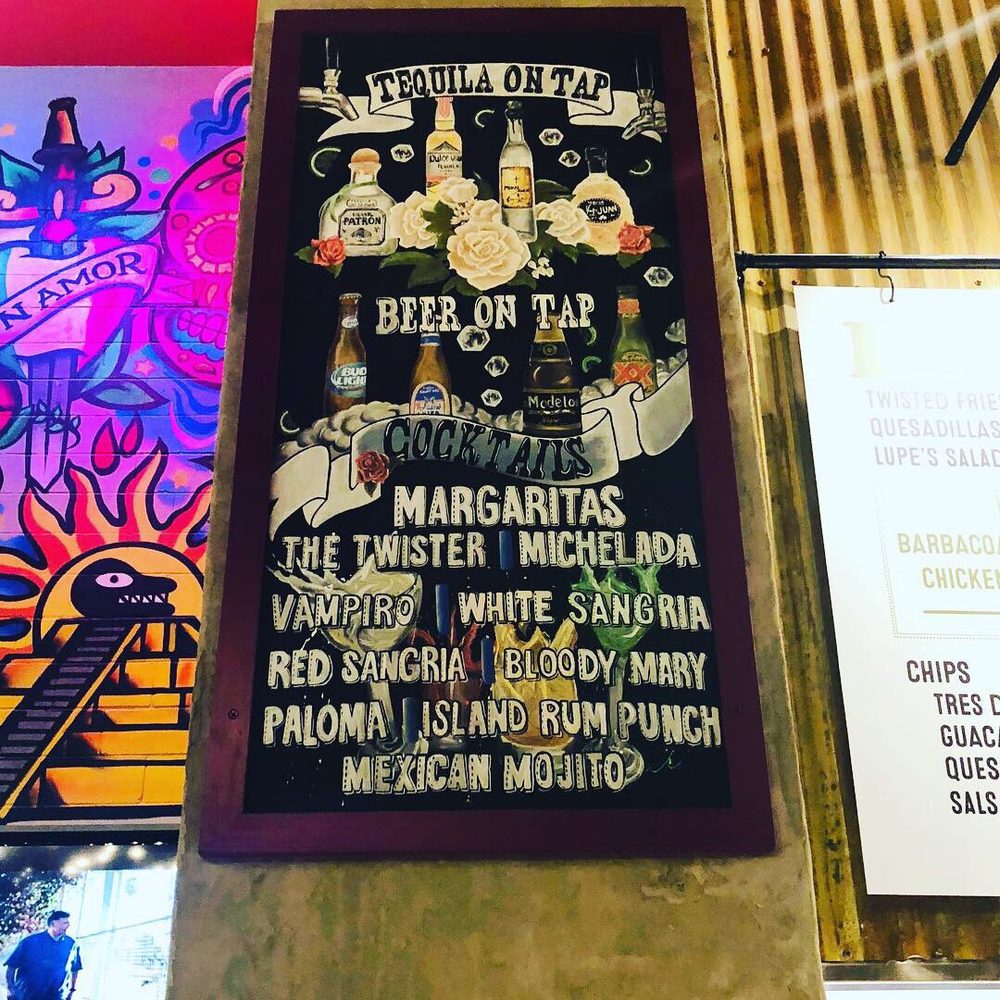 N AMOR
TEQUILA ON TAP
DULCE VIDA
TEQUILA
SILVER
PATRÓN
JUAN
BEER ON TAP
BUD
LIGHT
Modelo
XX
COCKTAILS
MARGARITAS
THE TWISTER | MICHELADA
VAMPIRO | WHITE SANGRIA
RED SANGRIA | BLOODY MARY
PALOMA | ISLAND RUM PUNCH
MEXICAN MOJITO
TWISTED FRIE
QUESADILLAS
LUPE'S SALAD
BARBACOA
CHICKEN
CHIPS
TRES D
GUACA
QUES
SALS